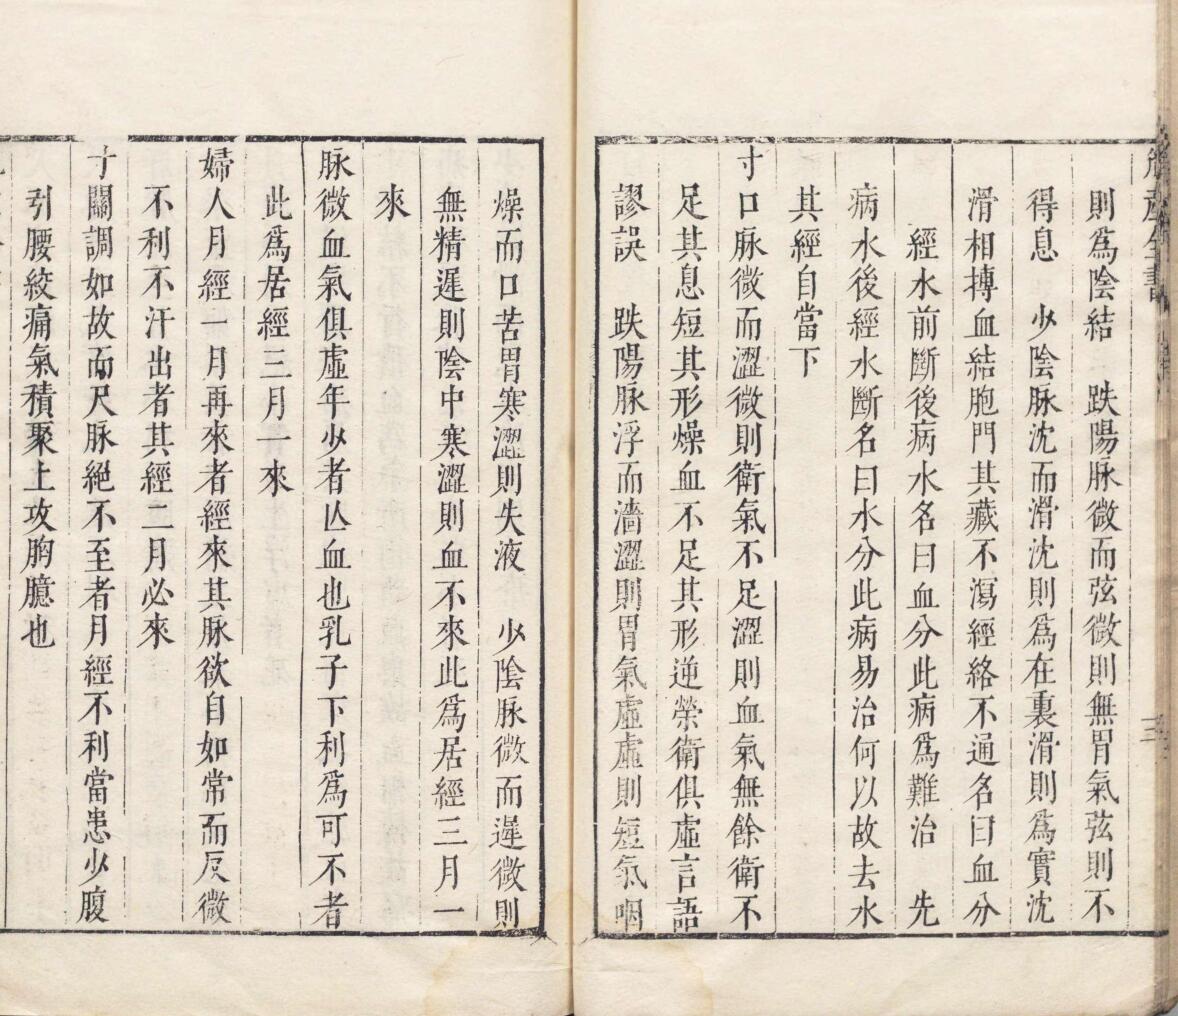 則爲陰結　趺陽脉微而弦微則無胃氣弦則不
得息　少陰脉沈而滑沈則爲在裏滑則爲實沈
滑相摶血結胞門其藏不瀉經絡不通名曰血分
經水前斷後病水名曰血分此病爲難治　先
病水後經水斷名曰水分此病易治何以故去水
其經自當下
寸口脉微而澀微則衛氣不足澀則血氣無餘衛不
足其息短其形燥血不足其形逆榮衛俱虛言語
謬誤　趺陽脉浮而濇澀則胃氣虛虛則短氣咽
燥而口苦胃寒澀則失液　少陰脉微而遲微則
無精遲則陰中寒澀則血不來此爲居經三月一
來
脉微血氣俱虛年少者亾血也乳子下利爲可不者
此爲居經三月一來
婦人月經一月再來者經來其脉欲自如常而反微
不利不汗出者其經二月必來
寸關調如故而尺脉絕不至者月經不利當患少腹
引腰絞痛氣積聚上攻胸臆也